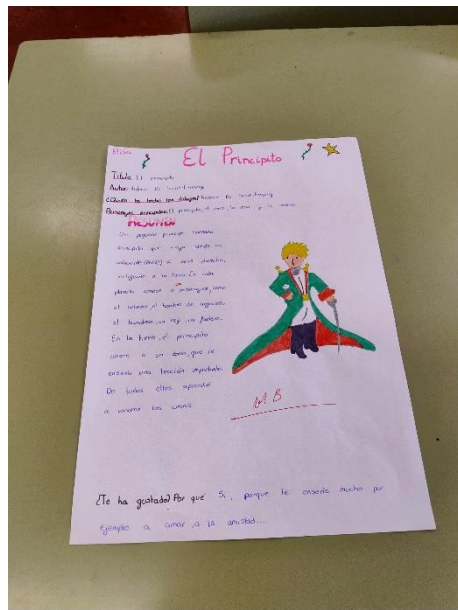 Elisa
El Principito
Título: El principito
Autor: Antoine De Saint-Exupéry
¿Quién ha hecho los dibujos? Antoine De Saint-Exupéry
Personajes principales: El principito, el
RESUMEN
Un pequeño príncipe llamado
principito que viaja desde su
asteroide a
a la tierra. En cada
planeta conoce a personajes, como
el hombre de negocios
el un rey, un farolero.
En la tierra, el principito
conoce a un zorro, que le
enseña una lección importante.
De todos ellos aprenderá
a valorar las
M B
¿Te ha gustado? Por qué Si, porque te enseña mucho por
ejemplo a amar, a la amistad...